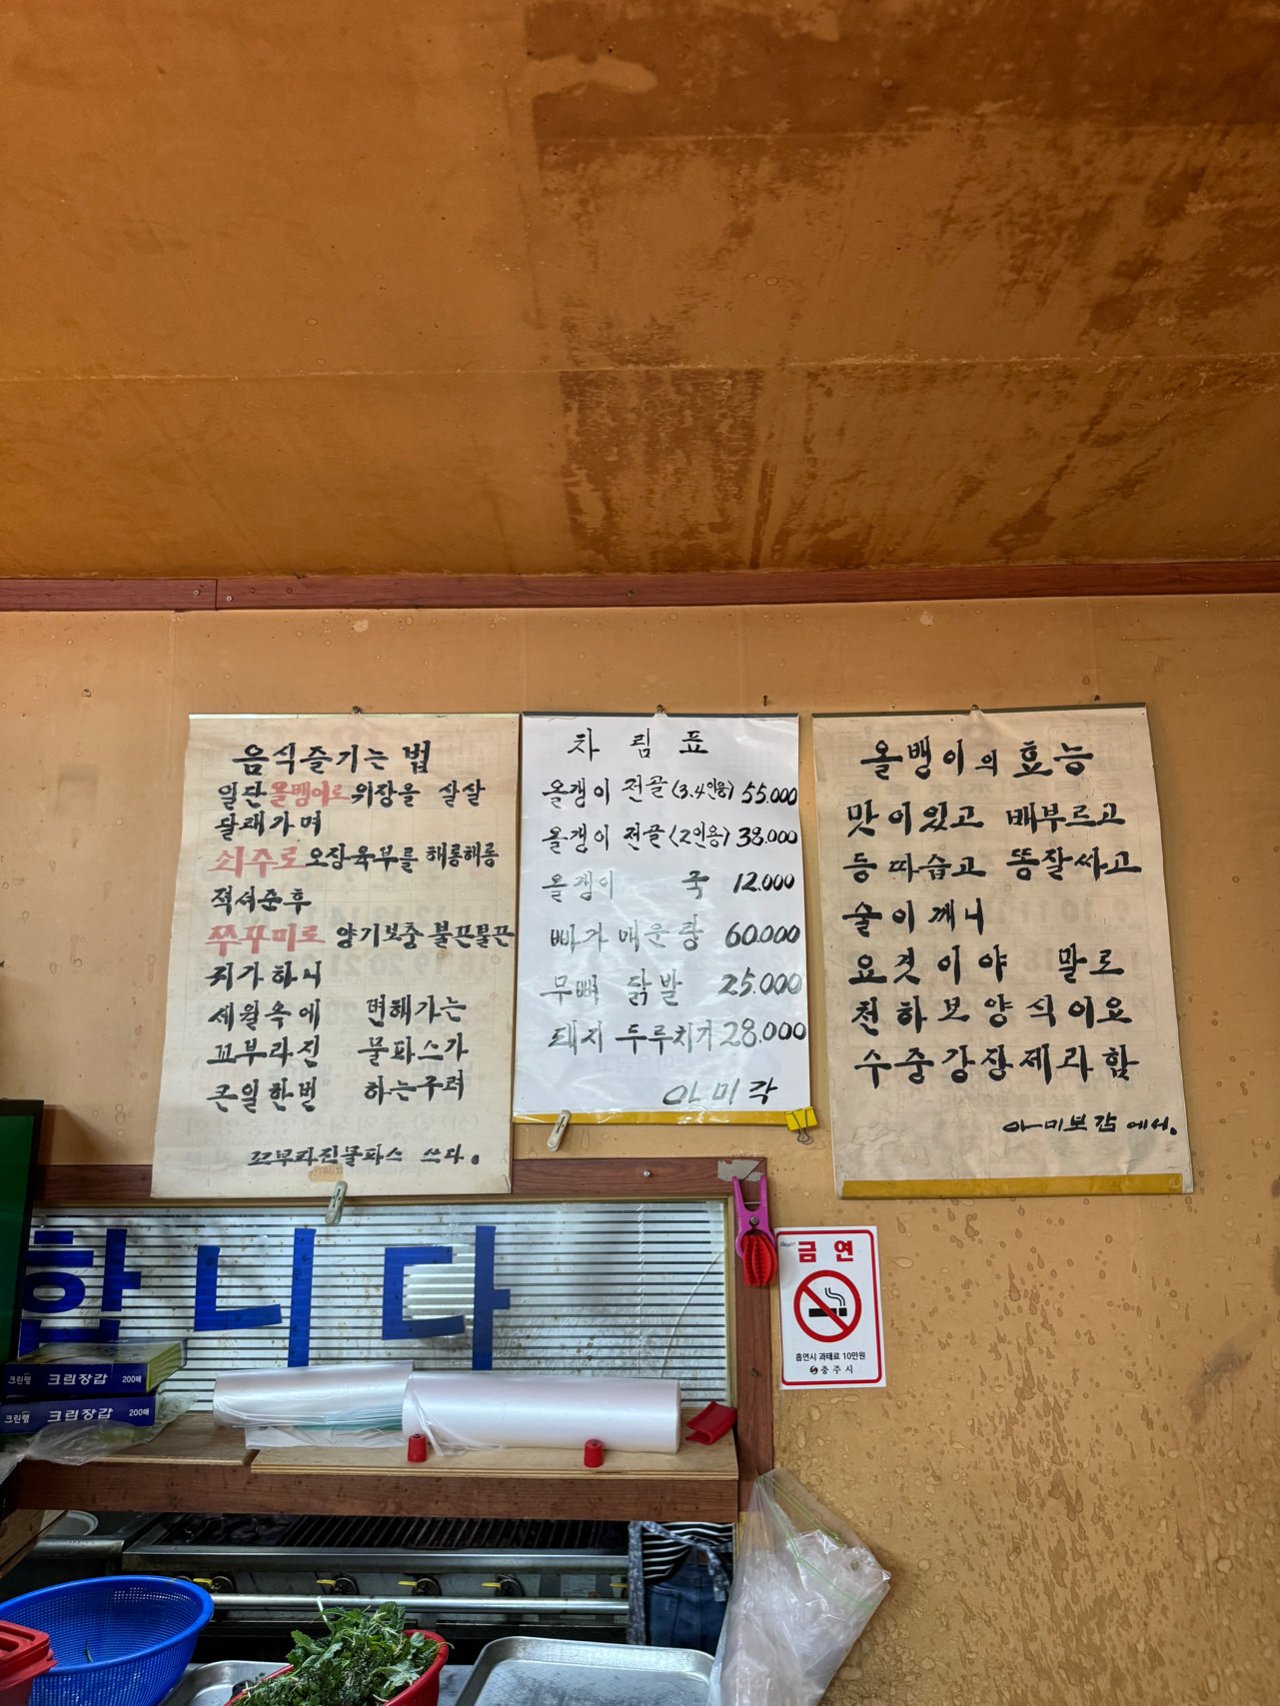 음식즐기는 법
일단 올뱅이로 위장을 살살
달래가며
쇠주로 오장육부를 해롱해롱
적셔준후
쭈꾸미로 양기보충 불끈불끈
취가하니
세월속에 변해가는
꼬부라진 물파스가
큰일한번 하는구려
꼬부라진물파스 쓰다.
차림표
올갱이 전골(3.4인용) 55.000
올갱이 전골(2인용) 38.000
올갱이 국 12.000
빠가 매운탕 60.000
무뼈 닭발 25.000
돼지 두루치기 28.000
아미각
올뱅이의 효능
맛이있고 배부르고
등따습고 똥잘싸고
술이깨니
요것이야 말로
천하보양식이요
수중강장제라 함
아미보감에서.
합니다
금연
흡연시 과태료 10만원
충주시
크린랲 크린장갑 200매
크린랲 크린장갑 200매